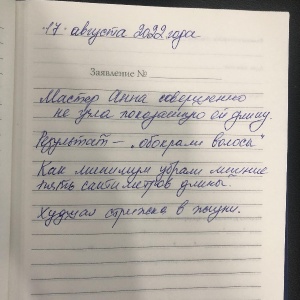 17 августа 2022 года
Заявление №
Мастер Анна совершенно
не учла походящую ей длину.
Результат – „обокрали волосы"
Как минимум убрали лишние
пять сантиметров длины.
Худшая стрижка в жизни.